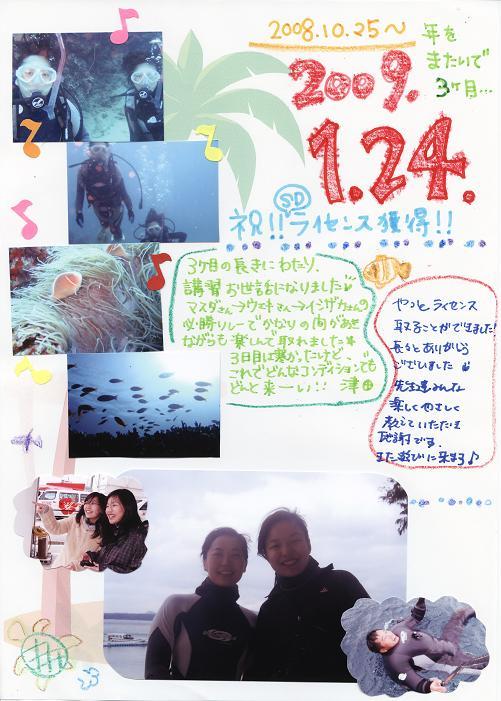 2008.10.25～
年を
またいで
3ヶ月…
2009.
1.24.
祝!! SD ライセンス獲得!!
3ヶ月の長きにわたり、
講習お世話になりました
マスダさん→ウエキさん→イシザカさんの
必勝リレーでかなりの間があき
ながらも楽しんで取れました
3日目は寒かったけど、
これでどんなコンディションでも
どんと来ーい!! 津田
やっとライセンス
取ることができました!
長々とありがとう
ございました
先生達みんな
楽しくやさしく
教えていただいて
感謝です。
また遊びに来まーす♪